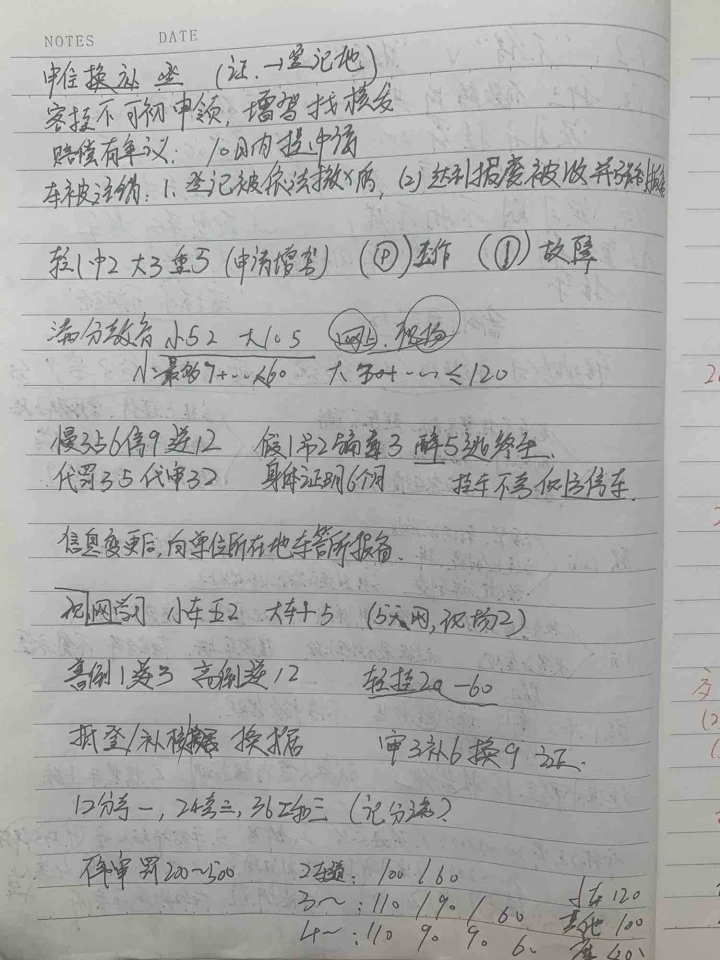 NOTES DATE
申住换补 (证→登记地)
客技不可初申领，增驾找核发
赔偿有争议：10日内提申请
车被注销：1.登记被依法撤×后，(2)达到报废被收并强制报废
轻1中2大3重5 (申请增驾) (P)工作 (!)故障
满分教育 小52 大105 网5.现场
小：最多7+…≤60 大 30+…≤120
慢356信9逆12 假1吊2 3醉5逃终生.
代罚35代审32 身体证明6个月 挂车不高低居停车.
信息变更后，向单位所在地车管所报备.
现网学习 小车五2 大车十5 (5天网，现场2)
高倒1逆3 高倒逆12 轻挂20-60
抵登/补 换居 审3补6换9 证.
12分考一，24考二，36 三 (记分满?)
审罚200~500 2车道：100 / 60
3~：110 / 90 / 60 小车120
4~：110 90 90 60 其他100